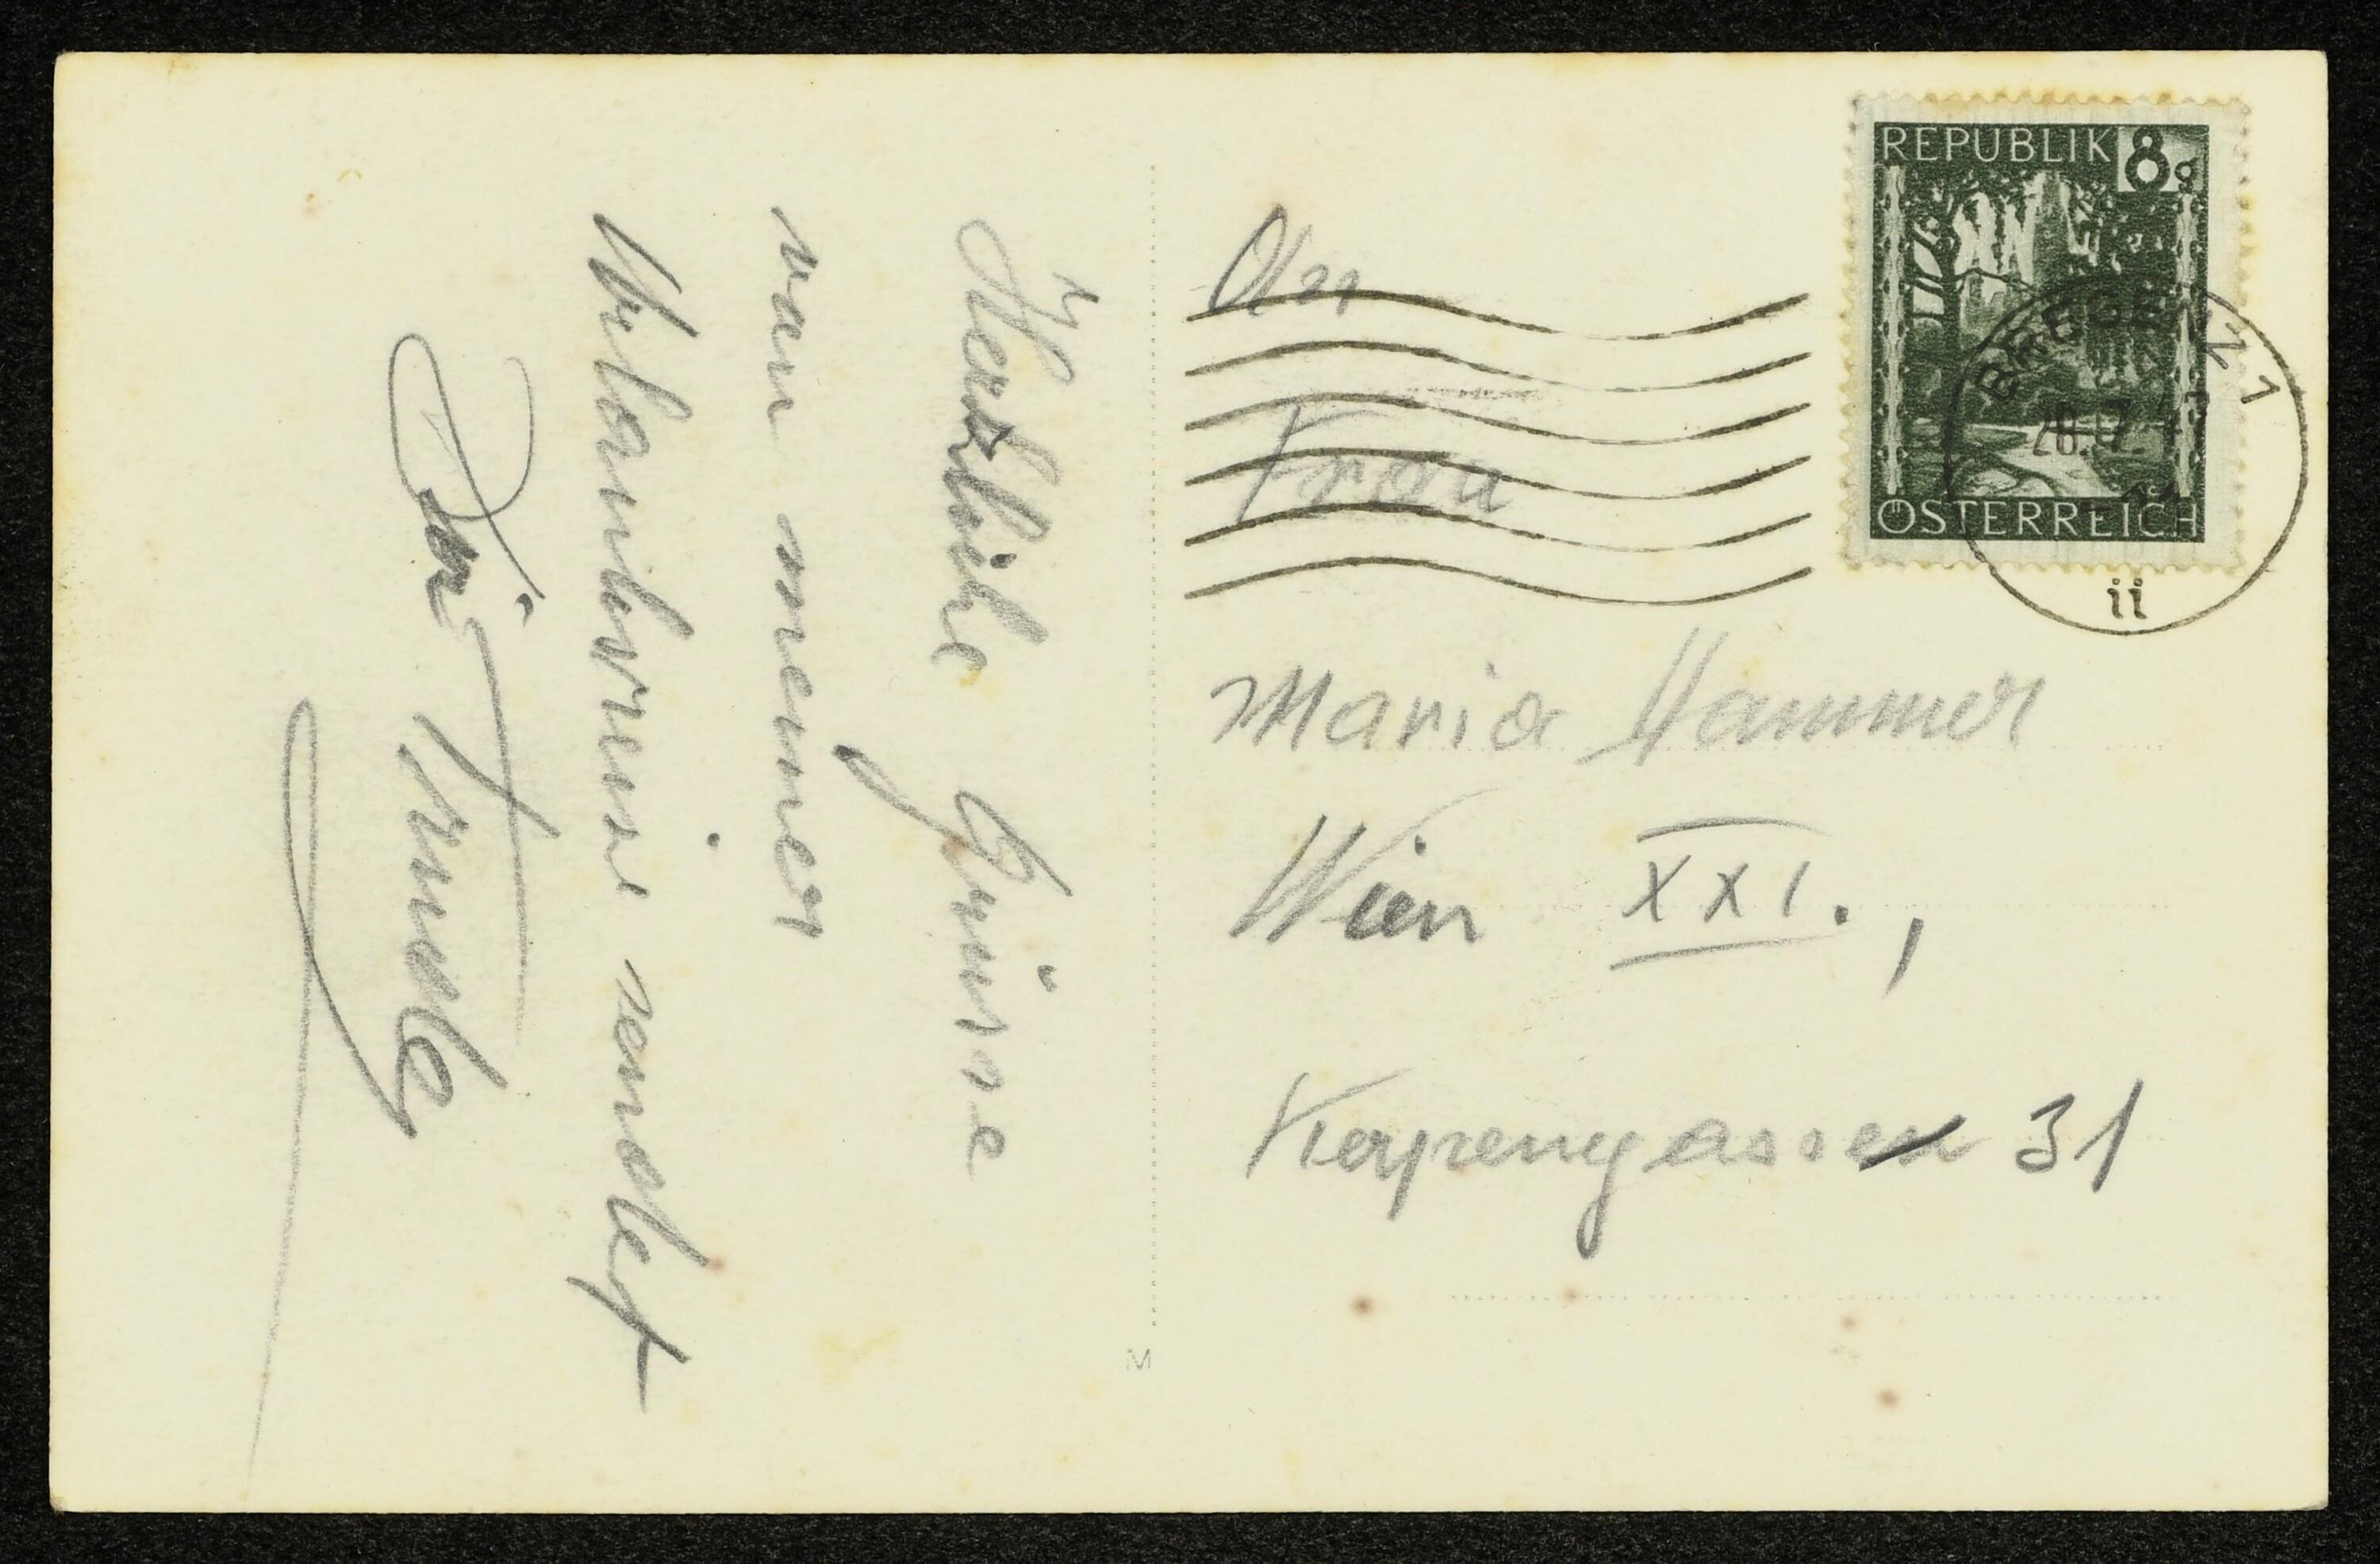 Herzliche Grüsse
von meiner
Urlaubsreise sendet
Trude
An
Frau
Maria Hammer
Wien XXI.,
Kerpengasse 31
REPUBLIK 8g
ÖSTERREICH
BREGENZ 1
ii
M